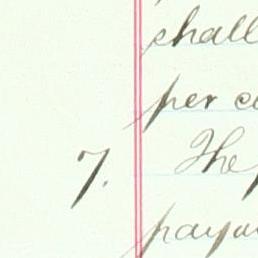 shall
per c
7. The
paya